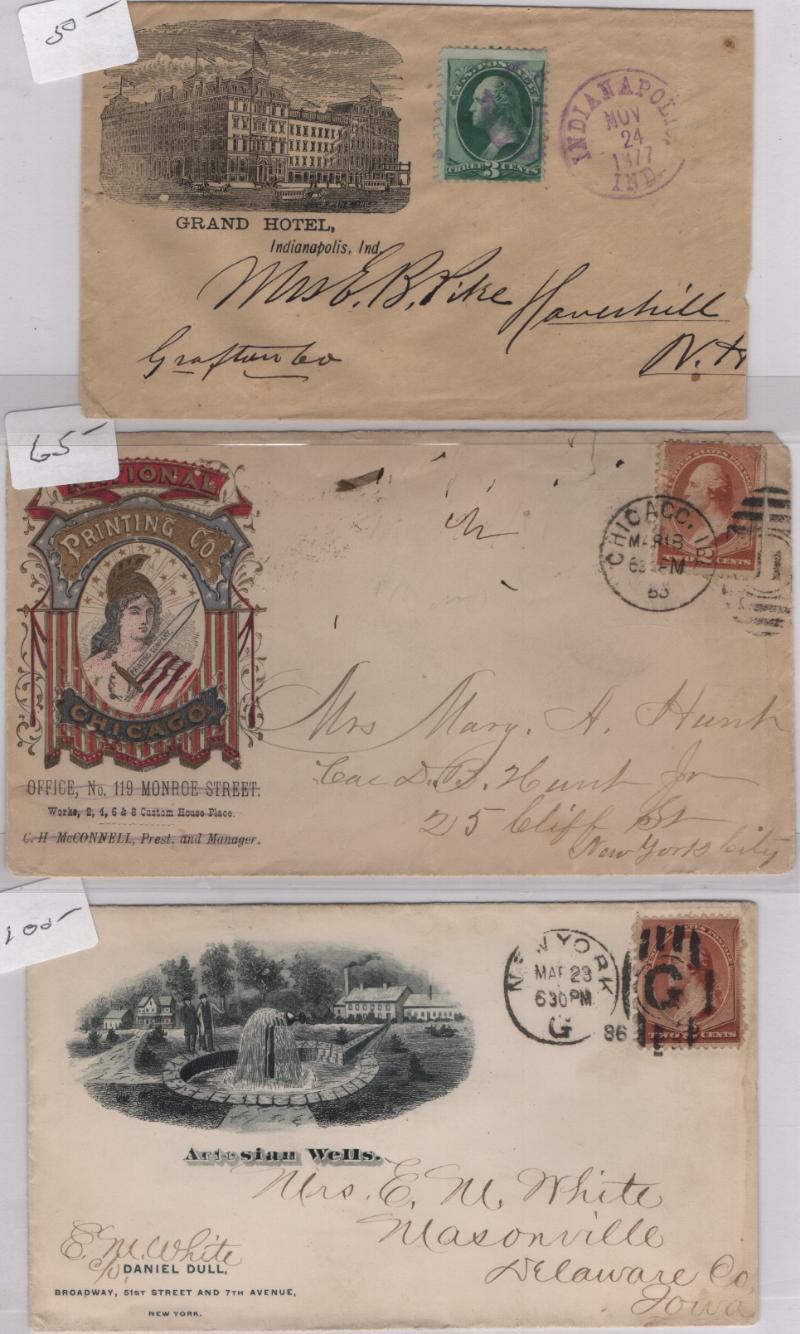 50-
U.S. POSTAGE
THREE 3 CENTS
INDIANAPOLIS
NOV
24
1877
IND.
GRAND HOTEL,
Indianapolis, Ind.
Mrs E. B. Pike
Haverhill
Grafton Co
N.H
65-
NATIONAL
PRINTING CO
PRINTING COMPANY
CHICAGO
OFFICE, No. 119 MONROE STREET.
Works, 2, 4, 6 & 8 Custom House Place.
C. H McCONNELL, Prest. and Manager.
UNITED STATES POSTAGE
CENTS
CHICAGO, ILL
MAR 18
630 PM
1
Mrs Mary. A. Hunt
Cae D. B. Hunt Jr
25 Cliff St
New York City
100-
NEW YORK
MAR 23
630PM
G
86
G
TWO 2 CENTS
Artesian Wells.
Mrs. E. M. White
Masonville
Delaware Co
Iowa
E. M. White
DANIEL DULL,
BROADWAY, 51ST STREET AND 7TH AVENUE,
NEW YORK.